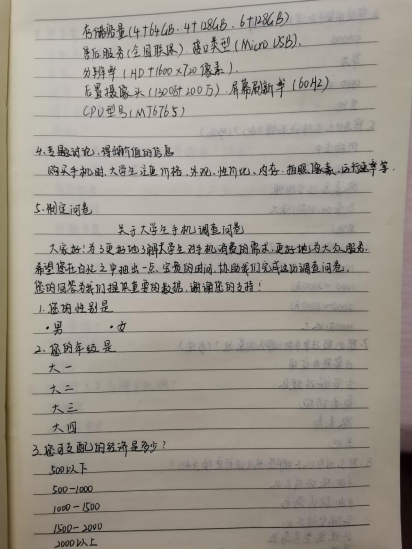 存储容量(4+64GB、4+128GB、6+128GB)
售后服务(全国联保) 接口类型(Micro USB)、
分辨率(HD+1600×720像素)、
后置摄像头(1300万+200万)、屏幕刷新率(60Hz)
CPU型号(MT6765)
4.专题讨论,得出有价值的信息
购买手机时,大学生注重价格、外观、性价比、内存、拍照像素、运行速率等.
5.制定问卷
关于大学生手机调查问卷
大家好!为了更好地了解大学生对手机消费的需求,更好地为大众服务.
希望您在百忙之中抽出一点、宝贵的时间,协助我们完成这份调查问卷.
您的回答为我们提供重要的数据,谢谢您的支持!
1.您的性别是
·男 ·女
2.您的年级是
大一
大二
大三
大四
3.您可支配的经济是多少?
500以下
500-1000
1000-1500
1500-2000
2000以上